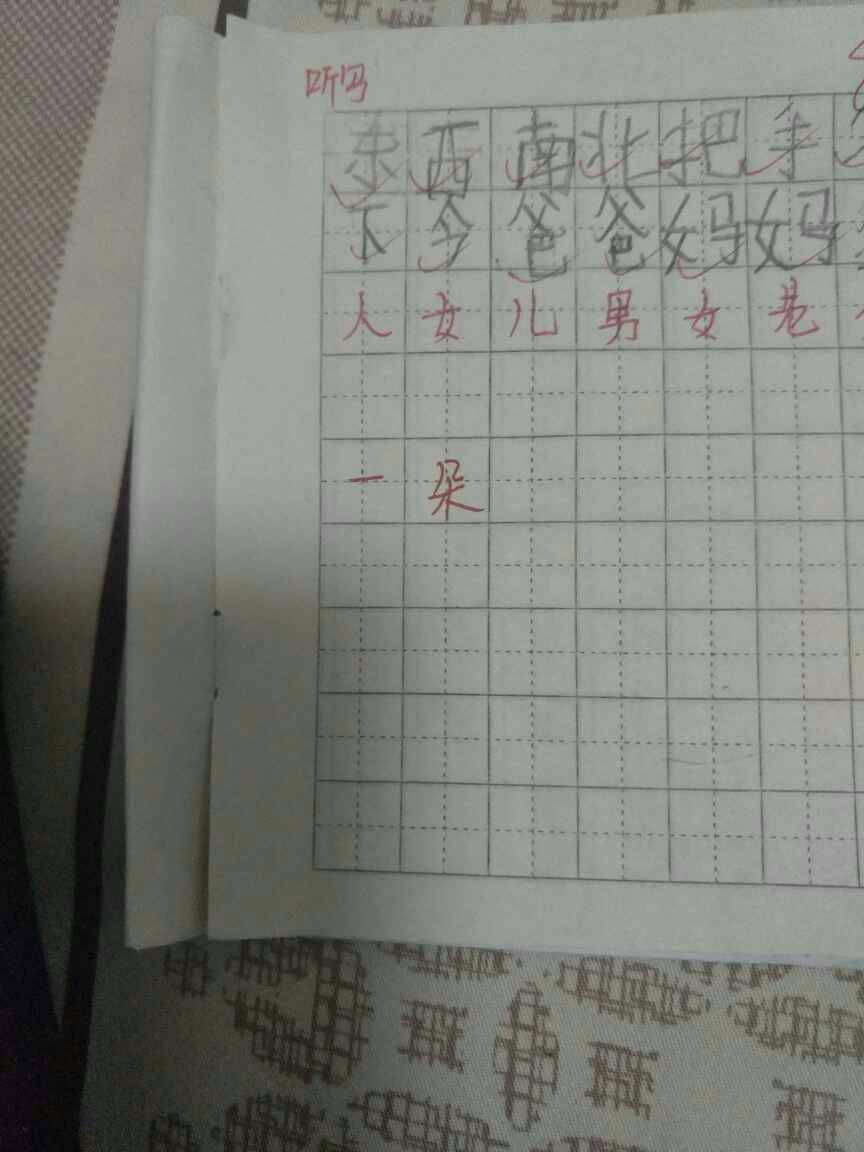 听写
东西南北把手
下今爸爸妈妈
人女儿男女老
一朵